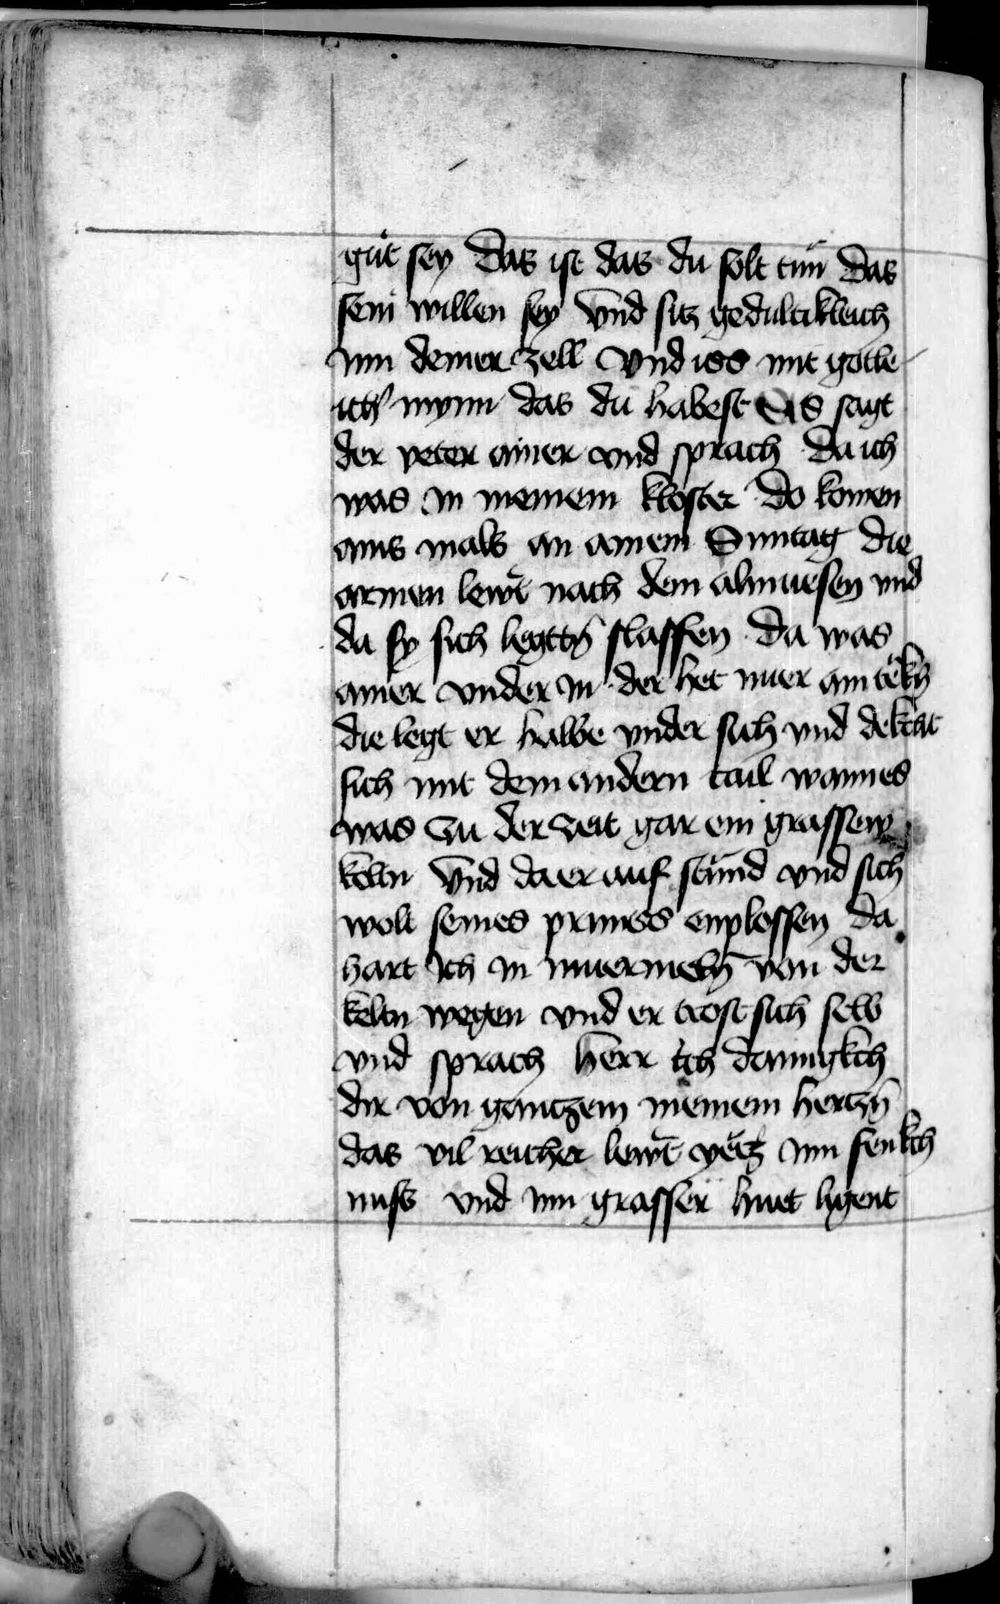 guͤt sey Das ist das du solt tuͤn Das
sein willen sey Vnd sitz gedultikleich
Inn deiner zell Vnd iss mit gotle
ich mynn das du habest Es sagt
der veter ainer vnd sprach Da ich
was In meinem kloster Do komen
ains mals an ainem Sunntag die
armen lewt nach dem almuesen vnd
da sy sich legttn̄ slaffen Da was
ainer vnder In der het nuer ain tekn̄
die legt er halbe vnder sich vnd dekchat
sich mit dem andern tail wann es
was zu der zeit gar ein grassew
keltn Vnd da er auf stuͤnd vnd sich
wolt seines prunss enplossen da
hart Ich In muermeln̄ von der
keltn wegen vnd er trost sich selb
vnd sprach Herr ich dannigkch
dir von gantzem meinem hertzn̄
das vil reicher lewt yetz Inn fenkch
nuss vnd Inn grasser huet ligent